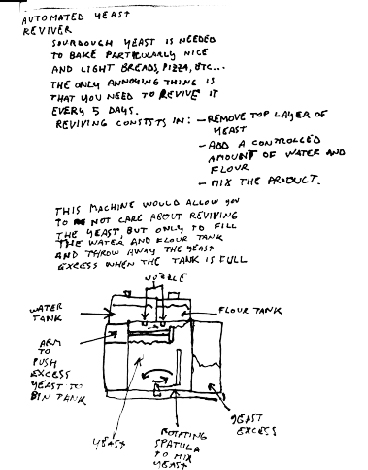 AUTOMATED YEAST
REVIVER
SOURDOUGH YEAST IS NEEDED
TO BAKE PARTICULARLY NICE
AND LIGHT BREADS, PIZZA, ETC...
THE ONLY ANNOYING THING IS
THAT YOU NEED TO REVIVE IT
EVERY 5 DAYS.
REVIVING CONSISTS IN: - REMOVE TOP LAYER OF
YEAST
- ADD A CONTROLLED
AMOUNT OF WATER AND
FLOUR
- MIX THE PRODUCT.
THIS MACHINE WOULD ALLOW YOU
TO NOT CARE ABOUT REVIVING
THE YEAST, BUT ONLY TO FILL
THE WATER AND FLOUR TANK
AND THROW AWAY THE YEAST
EXCESS WHEN THE TANK IS FULL
NOZZLE
WATER
TANK
FLOUR TANK
ARM
TO
PUSH
EXCESS
YEAST TO
BIN TANK
YEAST
ROTATING
SPATULA
TO MIX
YEAST
YEAST
EXCESS